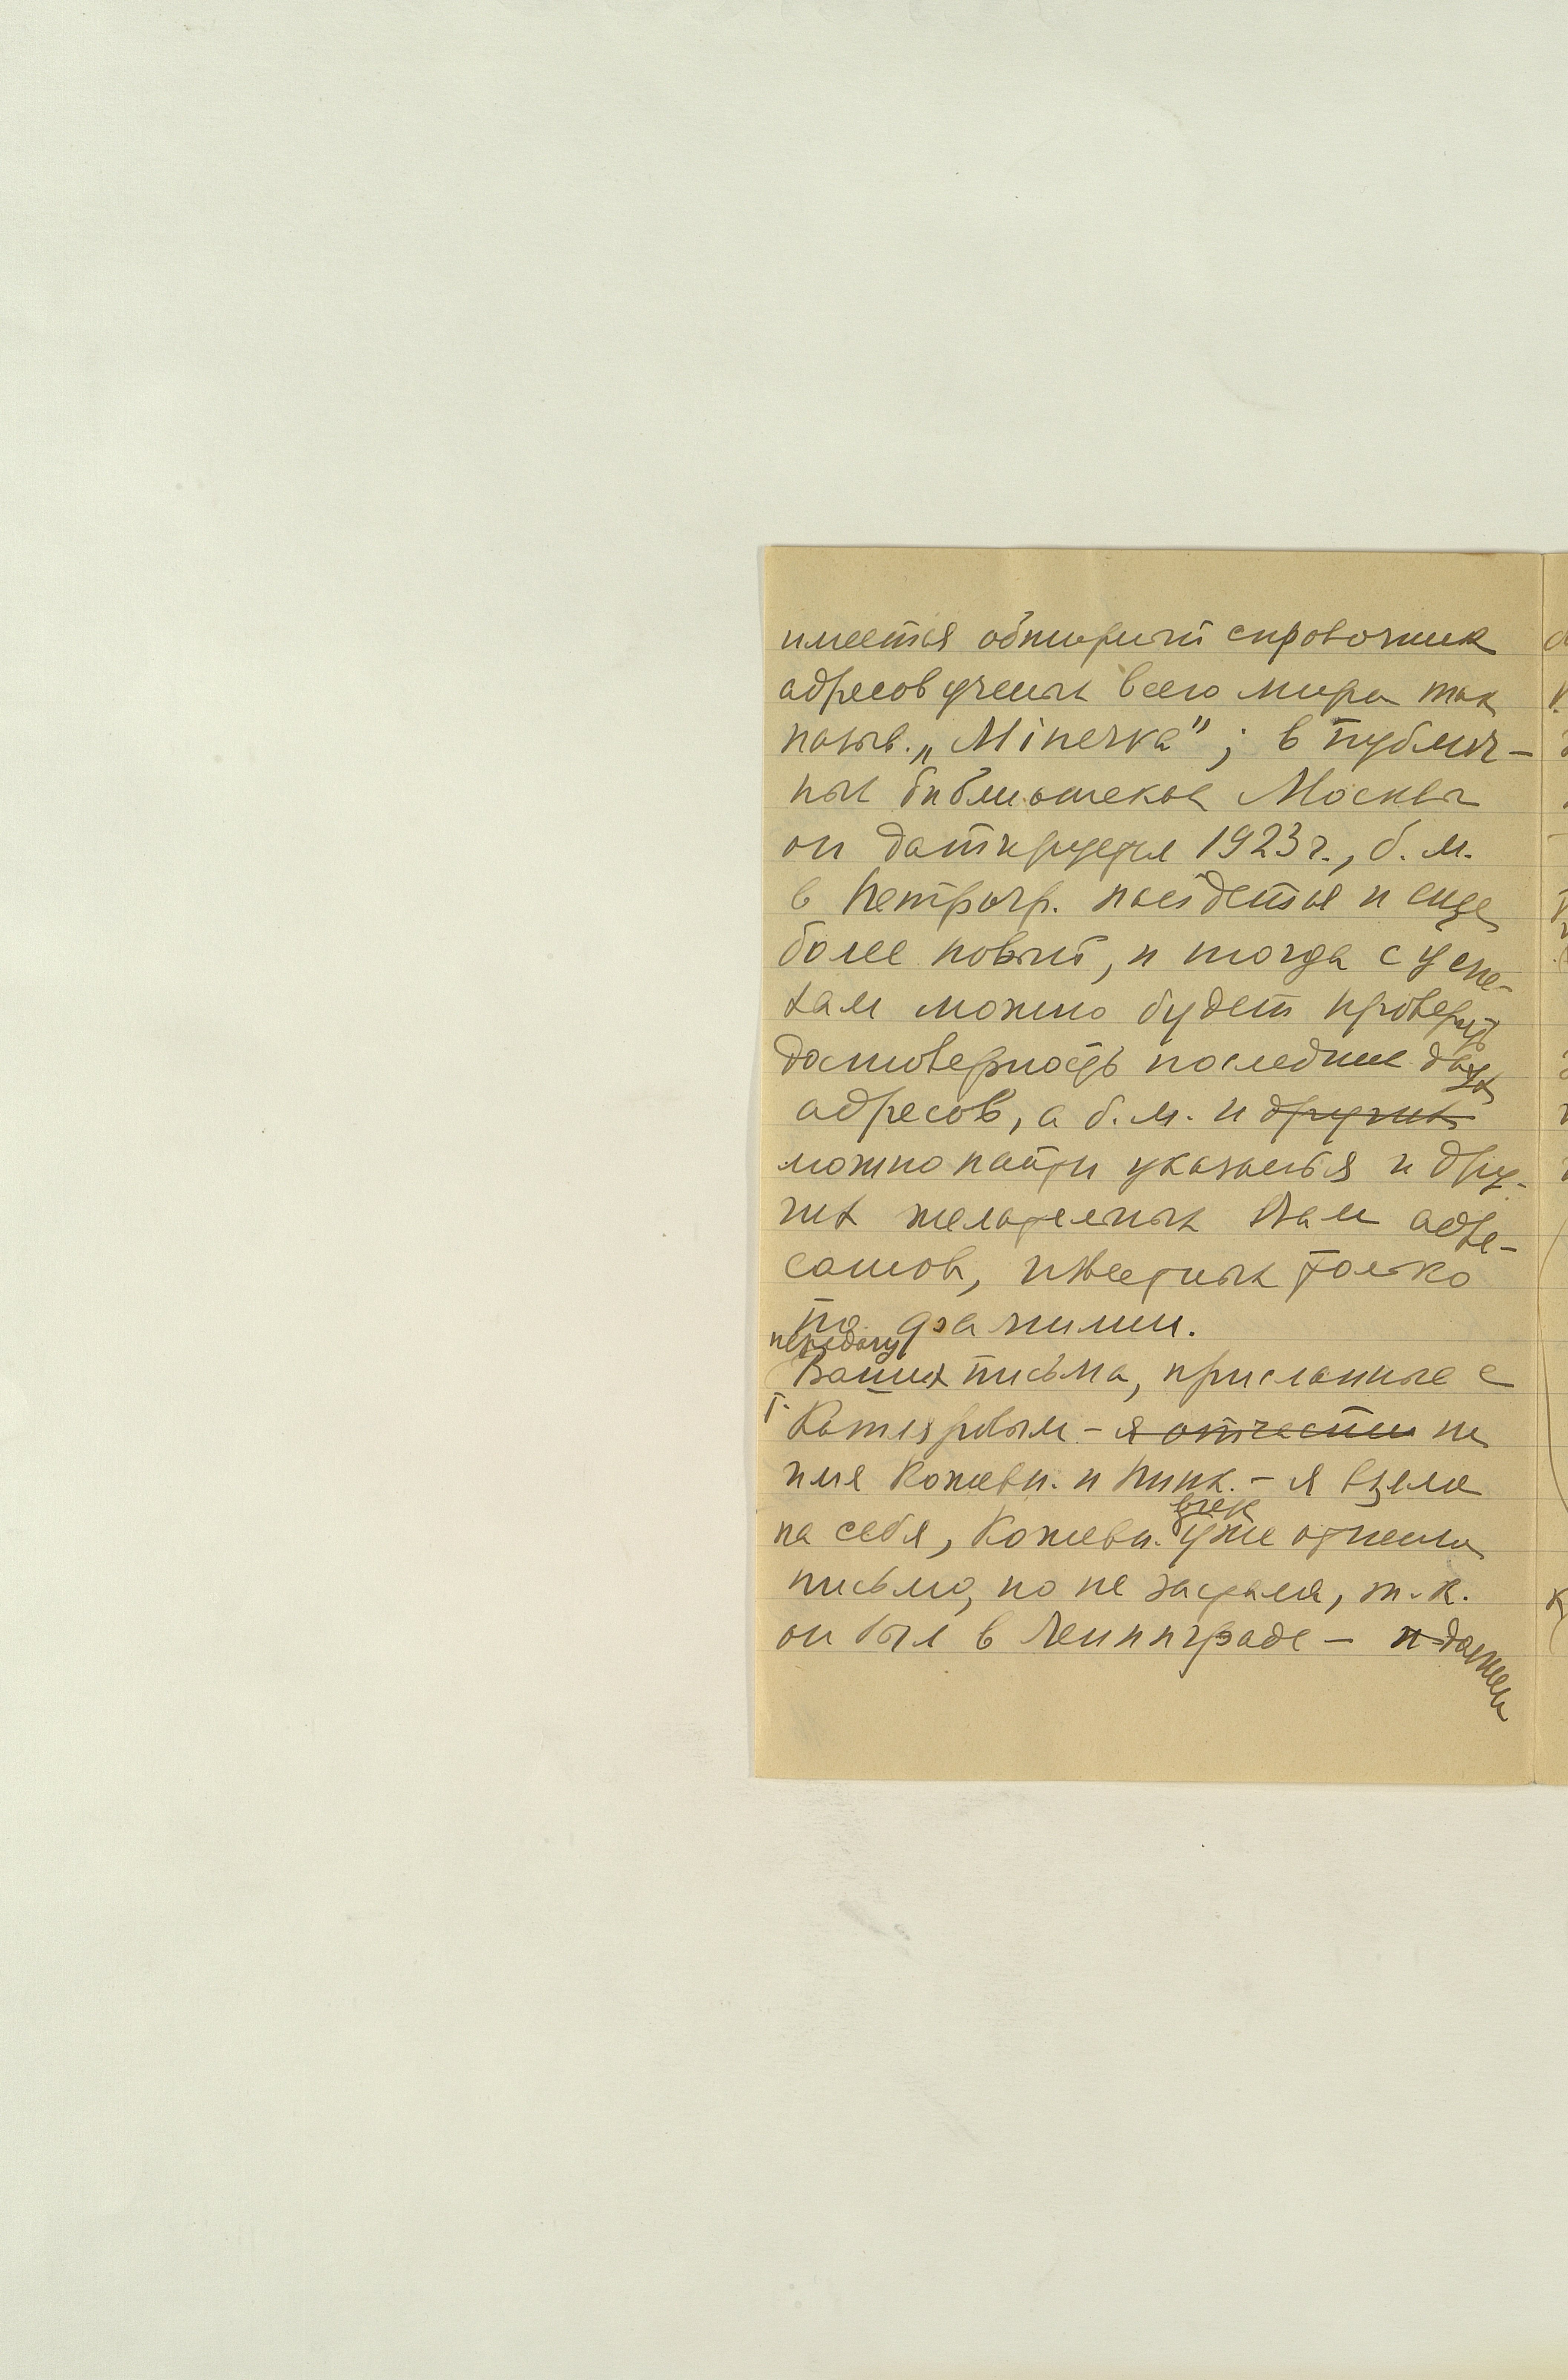 имеется обширный справочник
адресов ученых всего мира так
назыв. „Minerva"; в публич-
ных библиотеках Москвы
он датируется 1923 г., б. м.
в Петрогр. найдется и еще
более новый, и тогда с успе-
хам можно будет проверить
достоверность последних двух
адресов, а б. м. и других
можно найти указания и дру-
гих желательных Вам адре-
сатов, известных только
по фамилии.
передачу
Ваших письма, присланные с
г.
на
имя Кожевн. и Пинк. – я взяла
на себя, Кожевн. уже отнесла
вчер
письмо, но не застала, т. к.
он был в Ленинграде – и должен